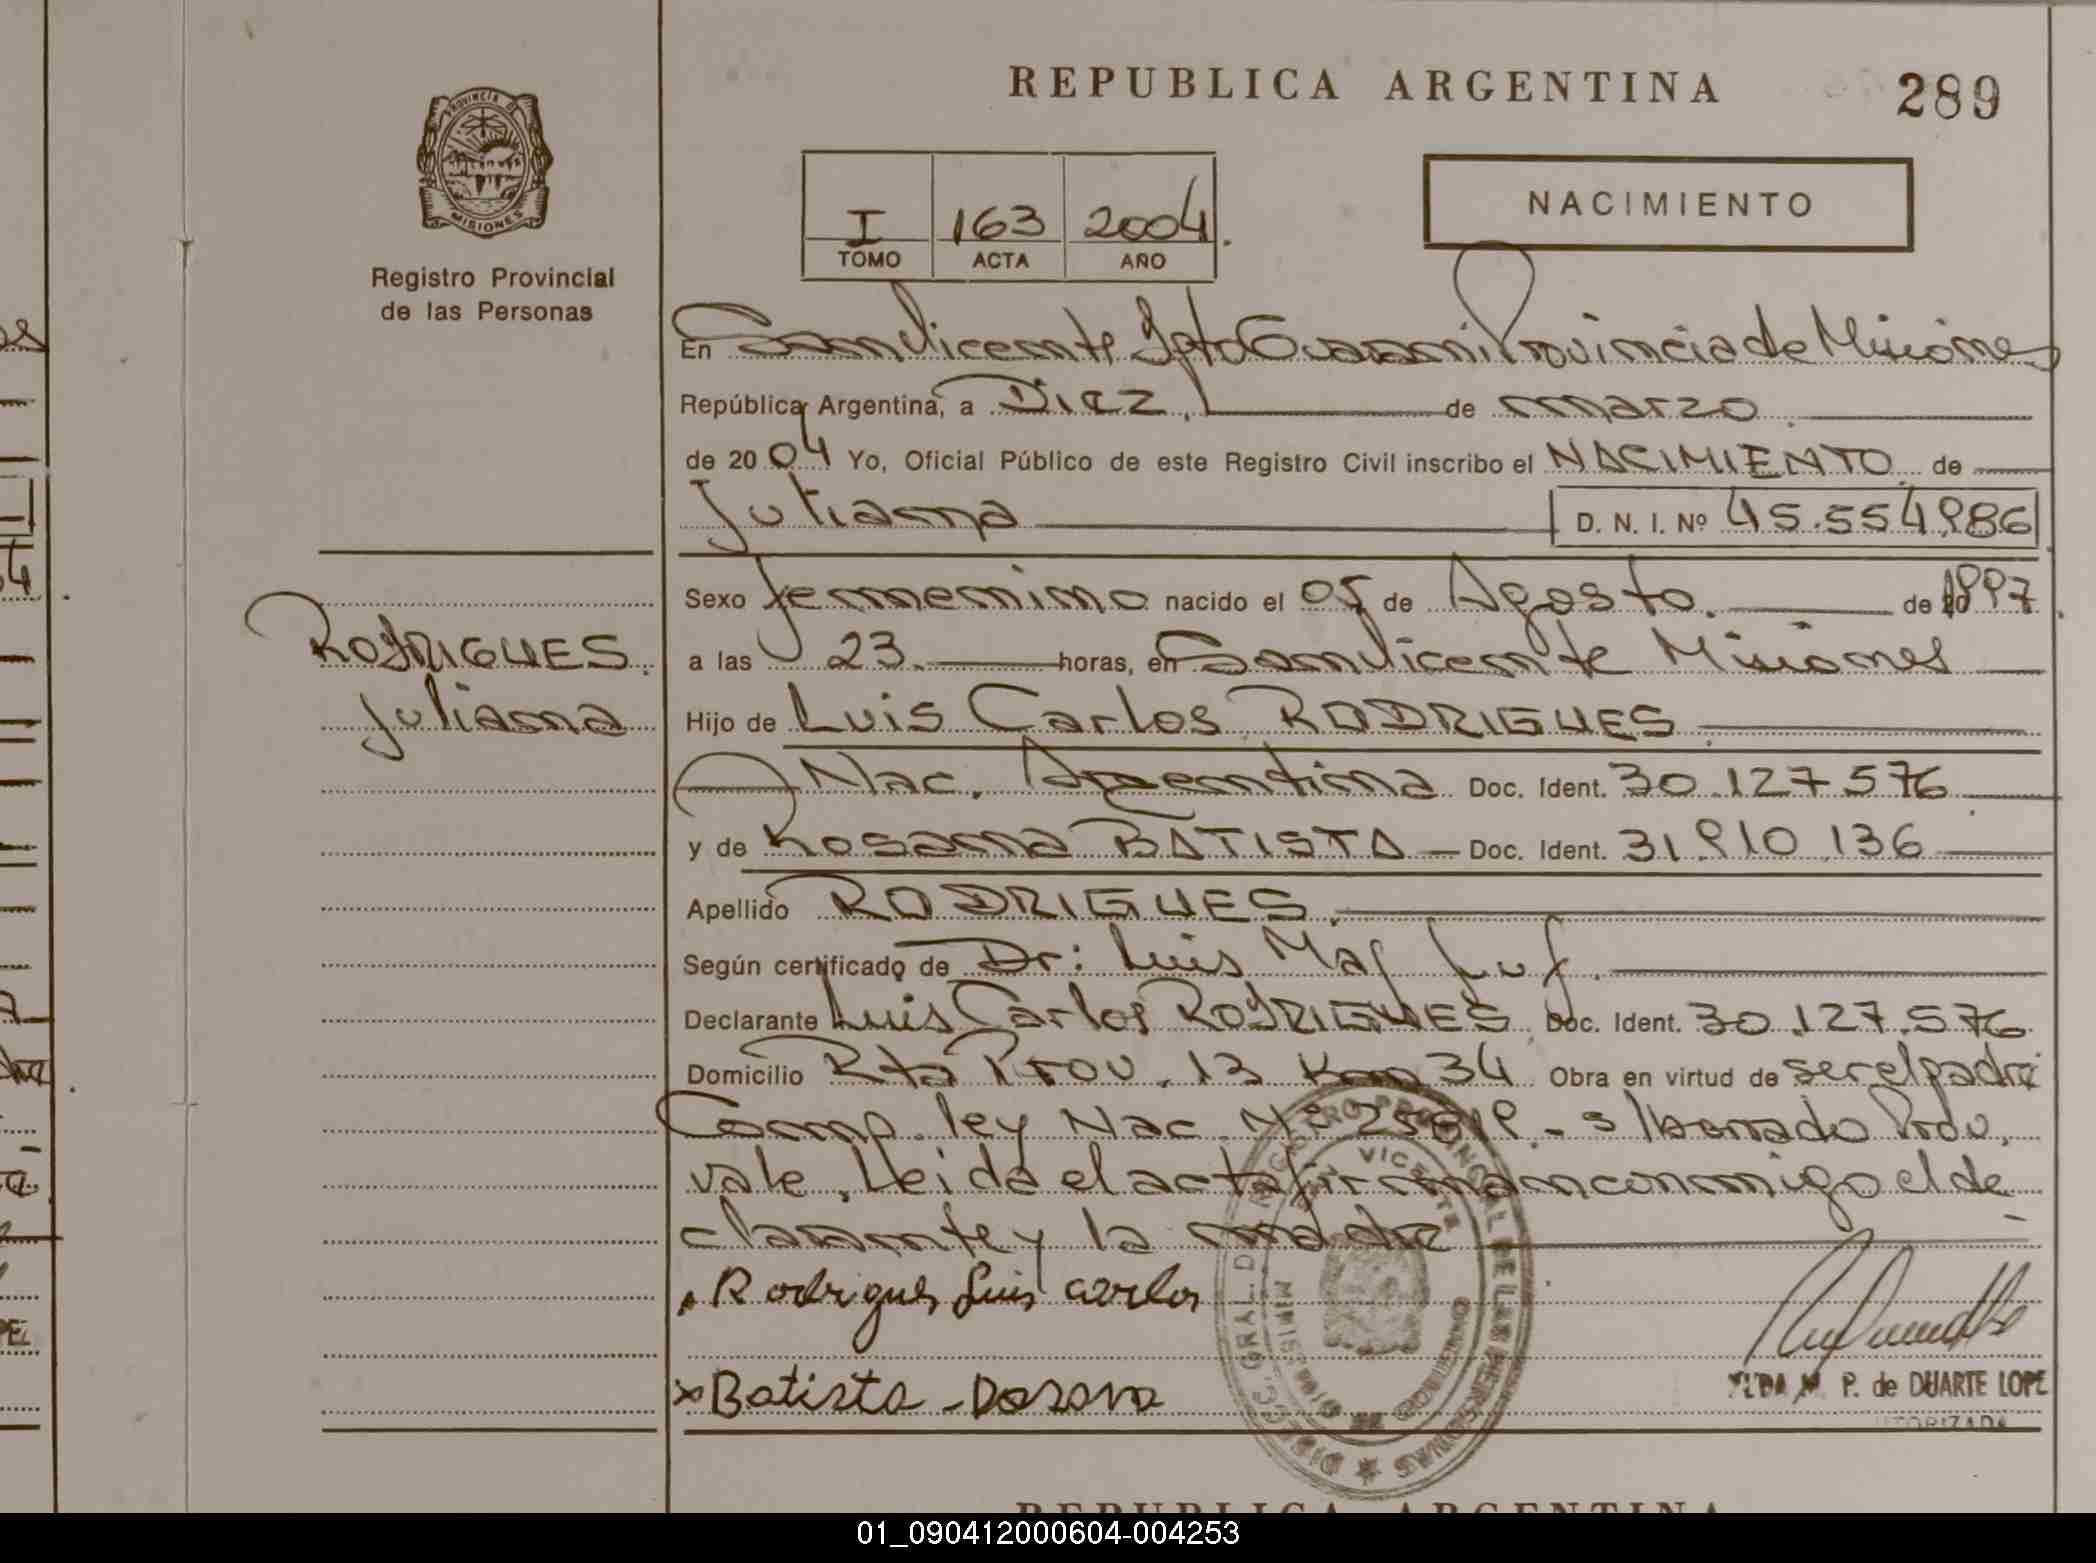 REPUBLICA ARGENTINA
289
PROVINCIA D
MISIONES
Registro Provincial
de las Personas
I 163 2004
TOMO ACTA AÑO
NACIMIENTO
En San Vicente Dpto Guaraní Provincia de Misiones
República Argentina, a Diez de marzo
de 2004 Yo, Oficial Público de este Registro Civil inscribo el NACIMIENTO de
Juliana D. N. I. Nº 45.554.986
RODRIGUES
Juliana
Sexo femenino nacido el 05 de Agosto de 1997
a las 23 horas, en San Vicente Misiones
Hijo de Luis Carlos RODRIGUES
Nac. Argentina Doc. Ident. 30.127.576
y de Rosana BATISTA Doc. Ident. 31.910.136
Apellido RODRIGUES
Según certificado de Dr: Luis
Declarante Luis Carlos RODRIGUES Doc. Ident. 30.127.576
Domicilio Rta Prov. 13 Km 34 Obra en virtud de ser el padre
Comp. ley Nac. Nº 25819.- s/borrado Prov.
vale. Leida el acta firman conmigo el de
clarante y la madre
Rodrigues Luis Carlos
x Batista - Rosana
P. de DUARTE LOPE
REPUBLICA ARGENTINA
01_090412000604-004253